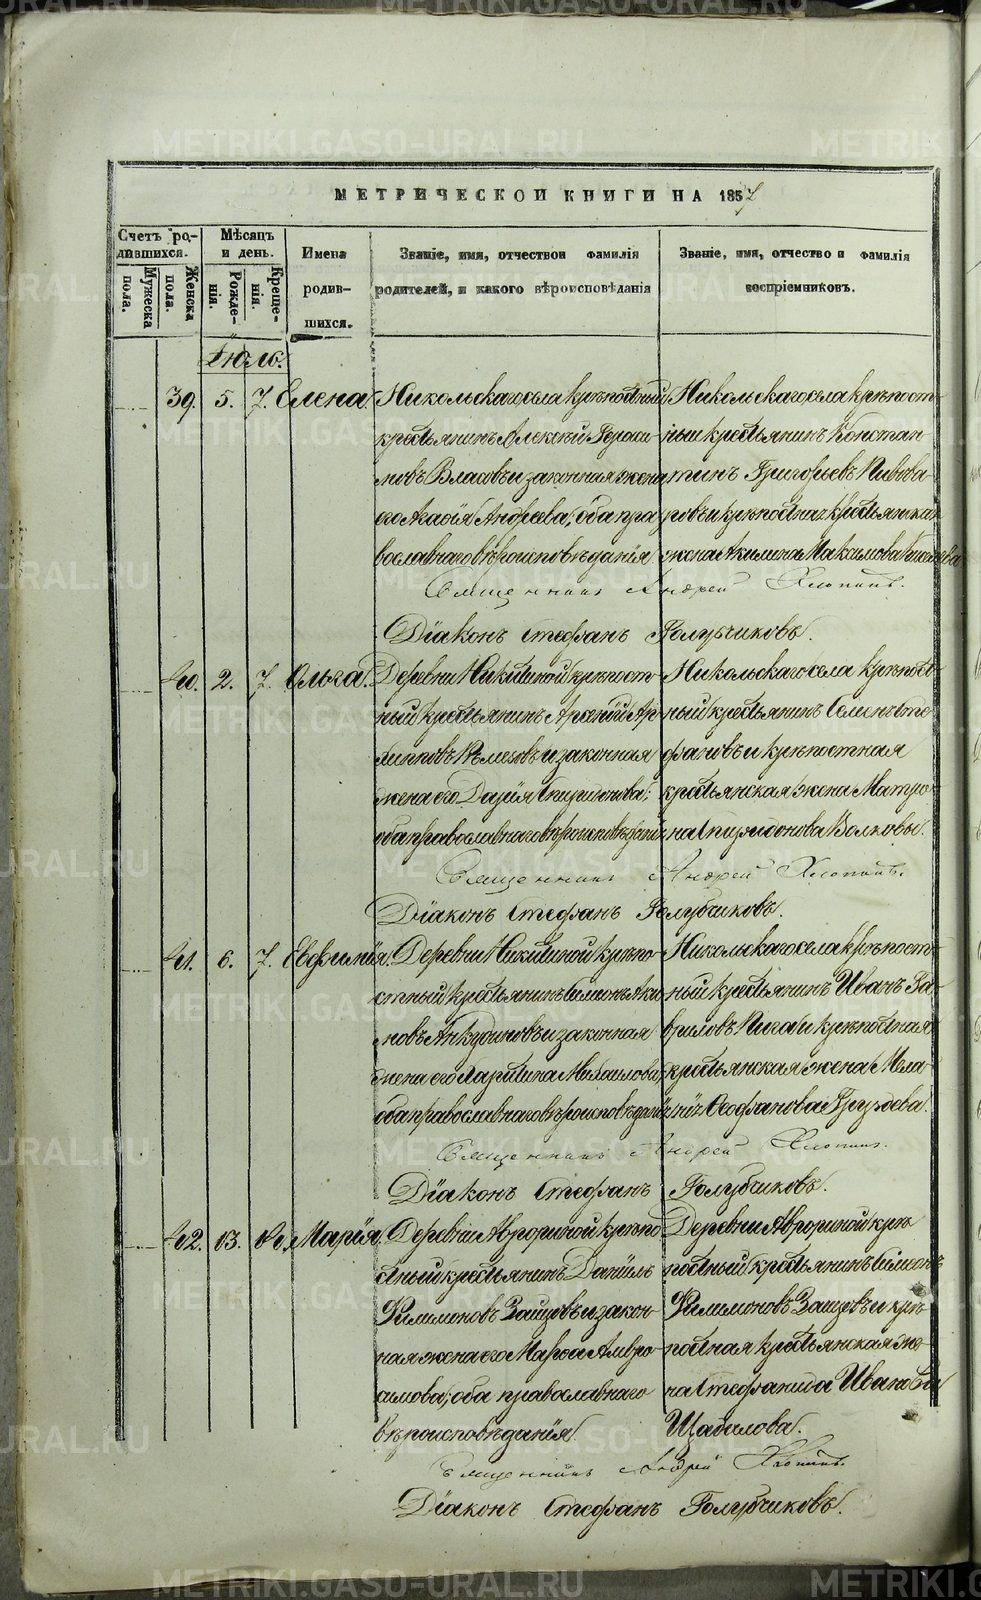 МЕТРИЧЕСКОЙ КНИГИ НА 1857
Счетъ ро-
дившихся.
Мужеска
пола.
Женска
пола.
Мѣсяцъ
и день.
Рожде-
нія.
Креще-
нія.
Имена
родив-
шихся.
Званіе, имя, отчествои фамилія
родителей, и какого вѣроисповѣданія
Званіе, имя, отчество и фамилія
воспріемниковъ.
Іюль.
39. 5. 7. Елена.
Никольскаго села крѣпостный
крестьянинъ Алексѣй Гераси-
мовъ Власовъ и законная жена
его Агафія Андреева; оба пра
вославнаго вѣроисповѣданія
Никольскаго села крѣпост-
ный крестьянинъ Констан-
тинъ Григорьевъ Пивова-
ровъ и крѣпостная крестьянская
жена Акилина Максимова
Священникъ Андрей Хлопинъ.
Діаконъ Стефанъ Голубчиковъ.
40. 2. 7. Ольга.
Деревни Никитиной крѣпост-
ный крестьянинъ Арсеній Ар-
хиповъ и законная
жена его Дарія Спиридонова;
оба православнаго вѣроисповѣданія
Никольскаго села крѣпост-
ный крестьянинъ Семенъ Сте-
фановъ и крѣпостная
крестьянская жена Матро-
на Спиридонова Волковы.
Священникъ Андрей Хлопинъ.
Діаконъ Стефанъ Голубчиковъ.
41. 6. 7. Евфимія.
Деревни Никитиной крѣпо-
стный крестьянинъ Симеонъ Аки
мовъ Анкудиновъ и законная
жена его Харитина Михаилова;
оба православнаго вѣроисповѣданія
Никольскаго села крѣпост-
ный крестьянинъ Иванъ Га-
вриловъ и крѣпостная
крестьянская жена Мела
нія Феофанова Груздева.
Священникъ Андрей Хлопинъ.
Діаконъ Стефанъ Голубчиковъ.
42. 13. Марія.
Деревни Аврориной крѣпо
стный крестьянинъ Даніилъ
Филимоновъ Зайцовъ и закон-
ная жена его Марфа Амвро-
симова; оба православнаго
вѣроисповѣданія.
Деревни Аврориной крѣ
постный крестьянинъ Симеонъ
Филимоновъ Зайцевъ и крѣ
постная крестьянская же-
на Стефанида Иванова
Щабалова.
Священникъ Андрей Хлопинъ.
Діаконъ Стефанъ Голубчиковъ.
METRIKI.GASO-URAL.RU